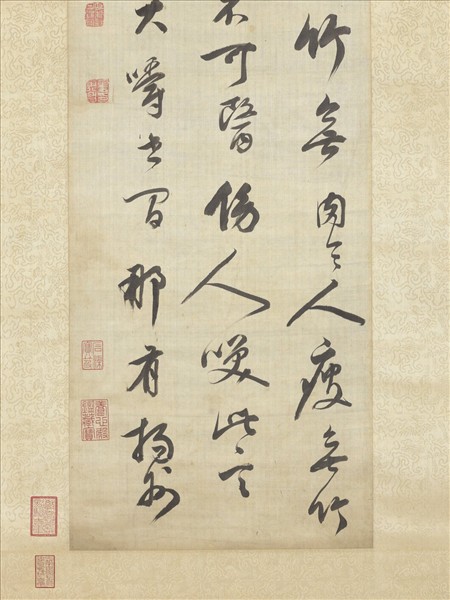 竹無肉令人瘦無竹
不可醫傍人咲此言
大嚼世間那有揚州